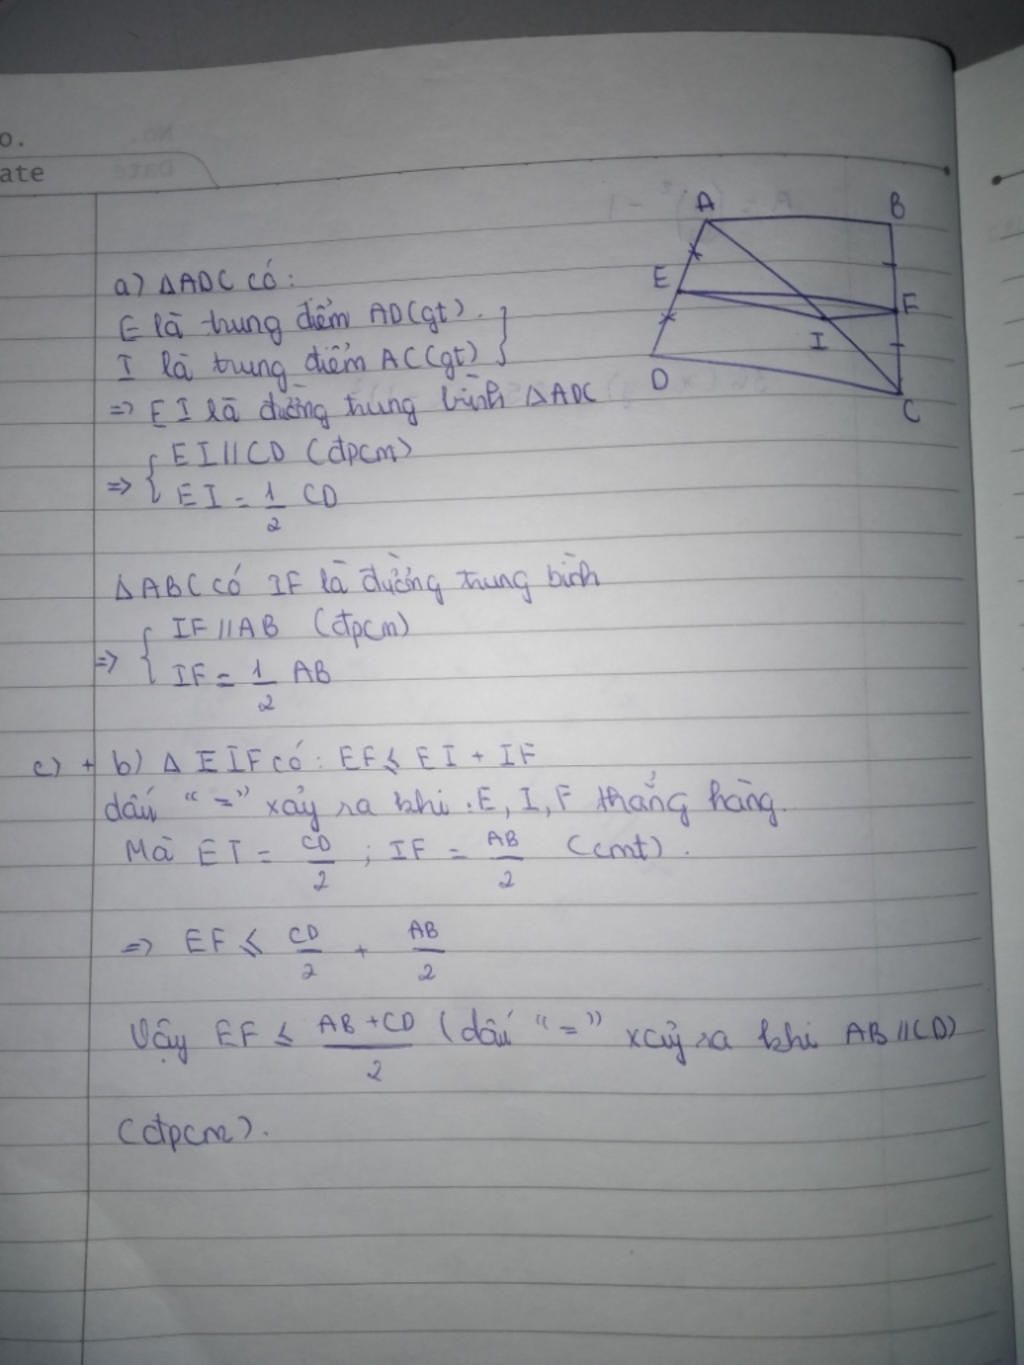 o.
ate
A
B
E
F
I
D
C
a) ΔADC có:
E là trung điểm AD (gt).
I là trung điểm AC (gt)
=> EI là đường trung bình ΔADC
=> { EI // CD (đpcm)
EI = 1/2 CD
ΔABC có IF là đường trung bình
=> { IF // AB (đpcm)
IF = 1/2 AB
c) + b) Δ EIF có: EF ≤ EI + IF
dấu "=" xảy ra khi E, I, F thẳng hàng.
Mà EI = CD/2 ; IF = AB/2 (cmt).
=> EF ≤ CD/2 + AB/2
Vậy EF ≤ AB + CD/2 (dấu "=" xảy ra khi AB // CD)
(đpcm).